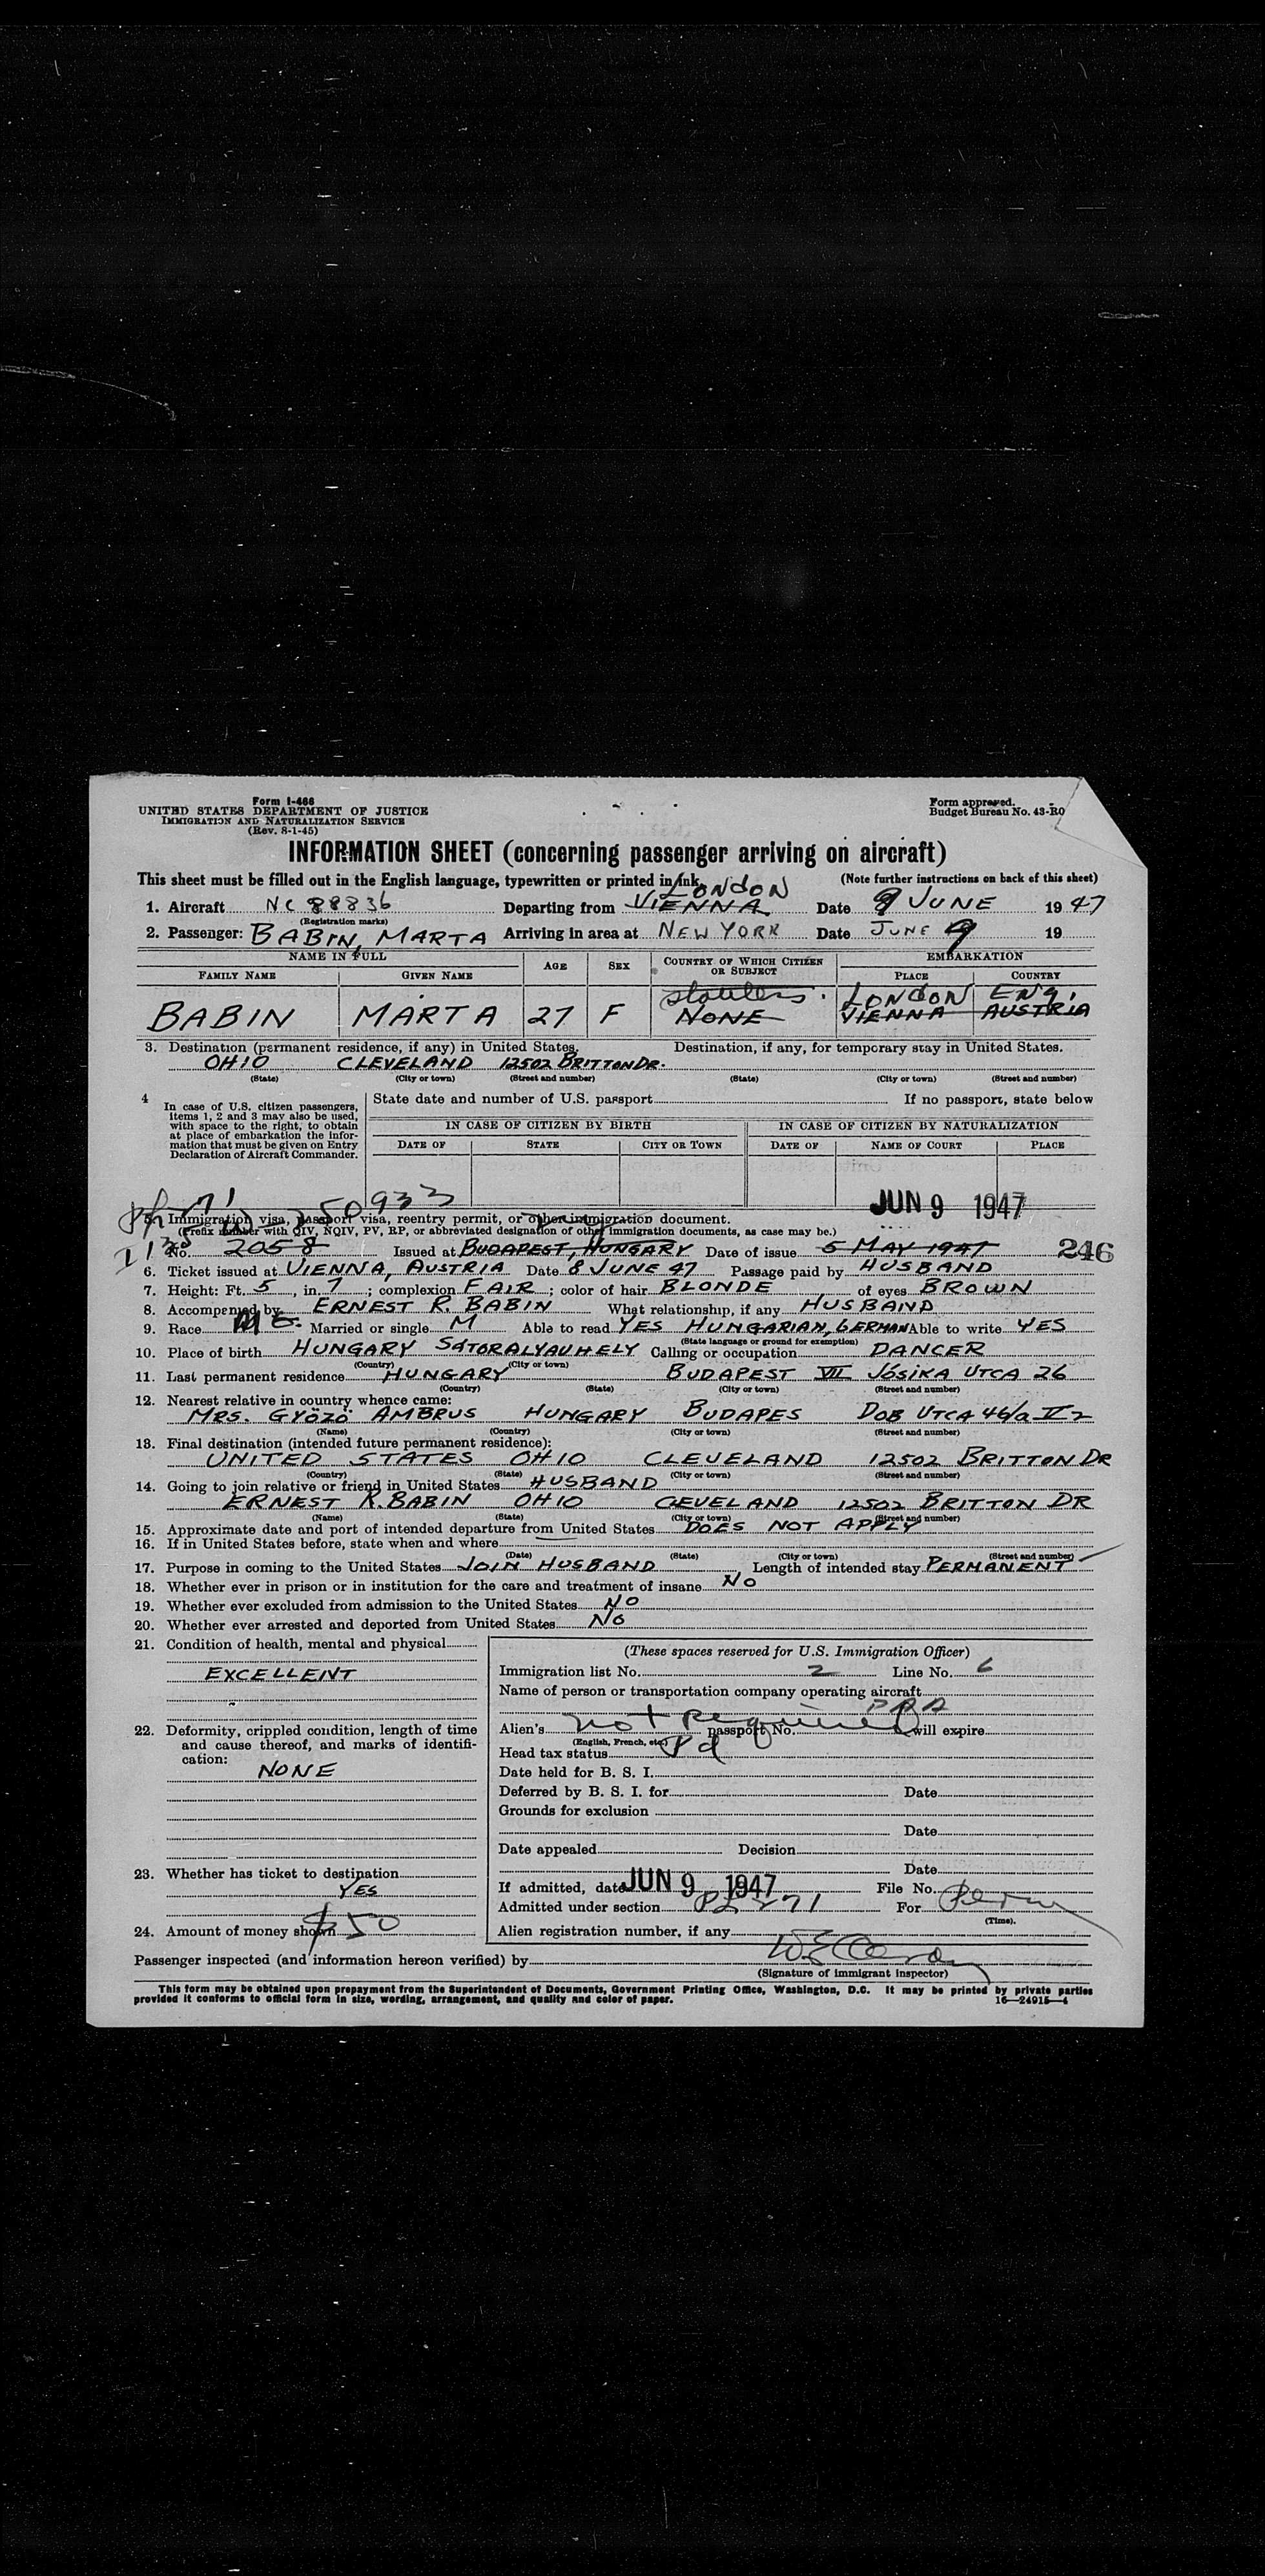 Form I-466
UNITED STATES DEPARTMENT OF JUSTICE
IMMIGRATION AND NATURALIZATION SERVICE
(Rev. 8-1-45)
Form approved.
Budget Bureau No. 43-R0
INFORMATION SHEET (concerning passenger arriving on aircraft)
This sheet must be filled out in the English language, typewritten or printed in ink. (Note further instructions on back of this sheet)
LONDON
1. Aircraft NC 88836 Departing from VIENNA Date 9 JUNE 1947
(Registration marks)
2. Passenger: BABIN, MARTA Arriving in area at NEW YORK Date JUNE 9 19
NAME IN FULL AGE SEX COUNTRY OF WHICH CITIZEN OR SUBJECT EMBARKATION
FAMILY NAME GIVEN NAME PLACE COUNTRY
stateless. LONDON ENG.
BABIN MARTA 27 F NONE VIENNA AUSTRIA
3. Destination (permanent residence, if any) in United States. Destination, if any, for temporary stay in United States.
OHIO CLEVELAND 12502 BRITTON DR.
(State) (City or town) (Street and number) (State) (City or town) (Street and number)
4 In case of U.S. citizen passengers, items 1, 2 and 3 may also be used, with space to the right, to obtain at place of embarkation the information that must be given on Entry Declaration of Aircraft Commander.
State date and number of U.S. passport If no passport, state below
IN CASE OF CITIZEN BY BIRTH IN CASE OF CITIZEN BY NATURALIZATION
DATE OF STATE CITY OR TOWN DATE OF NAME OF COURT PLACE
50933
JUN 9 1947
5. Immigration visa, passport visa, reentry permit, or other immigration document.
(Prefix number with QIV, NQIV, PV, RP, or abbreviated designation of other immigration documents, as case may be.)
No. 2058 Issued at BUDAPEST, HUNGARY Date of issue 5 MAY 1947 246
6. Ticket issued at VIENNA, AUSTRIA Date 8 JUNE 47 Passage paid by HUSBAND
7. Height: Ft. 5, in. 7; complexion FAIR; color of hair BLONDE of eyes BROWN
8. Accompanied by ERNEST R. BABIN What relationship, if any HUSBAND
9. Race Married or single M Able to read YES HUNGARIAN, GERMAN Able to write YES
(State language or ground for exemption)
10. Place of birth HUNGARY SATORALYAUHELY Calling or occupation DANCER
(Country) (City or town)
11. Last permanent residence HUNGARY BUDAPEST VII JÓSIKA UTCA 26
(Country) (State) (City or town) (Street and number)
12. Nearest relative in country whence came:
MRS. GYÖZÖ AMBRUS HUNGARY BUDAPES DOB UTCA 46/a II 2
(Name) (Country) (City or town) (Street and number)
13. Final destination (intended future permanent residence):
UNITED STATES OHIO CLEVELAND 12502 BRITTON DR
(Country) (State) (City or town) (Street and number)
14. Going to join relative or friend in United States HUSBAND
ERNEST R. BABIN OHIO CLEVELAND 12502 BRITTON DR
(Name) (State) (City or town) (Street and number)
15. Approximate date and port of intended departure from United States DOES NOT APPLY
16. If in United States before, state when and where
(Date) (State) (City or town) (Street and number)
17. Purpose in coming to the United States JOIN HUSBAND, Length of intended stay PERMANENT
18. Whether ever in prison or in institution for the care and treatment of insane NO
19. Whether ever excluded from admission to the United States NO
20. Whether ever arrested and deported from United States NO
21. Condition of health, mental and physical
EXCELLENT
22. Deformity, crippled condition, length of time and cause thereof, and marks of identification:
NONE
23. Whether has ticket to destination
YES
24. Amount of money shown $50
(These spaces reserved for U.S. Immigration Officer)
Immigration list No. 2 Line No. 6
Name of person or transportation company operating aircraft
Alien's not required passport No. will expire
(English, French, etc.)
Head tax status Pd
Date held for B. S. I.
Deferred by B. S. I. for Date
Grounds for exclusion
Date
Date appealed Decision
Date
If admitted, date JUN 9 1947 File No.
Admitted under section PL 271 For Perm
(Time).
Alien registration number, if any
Passenger inspected (and information hereon verified) by
(Signature of immigrant inspector)
This form may be obtained upon prepayment from the Superintendent of Documents, Government Printing Office, Washington, D.C. It may be printed by private parties
provided it conforms to official form in size, wording, arrangement, and quality and color of paper. 16—24915-4